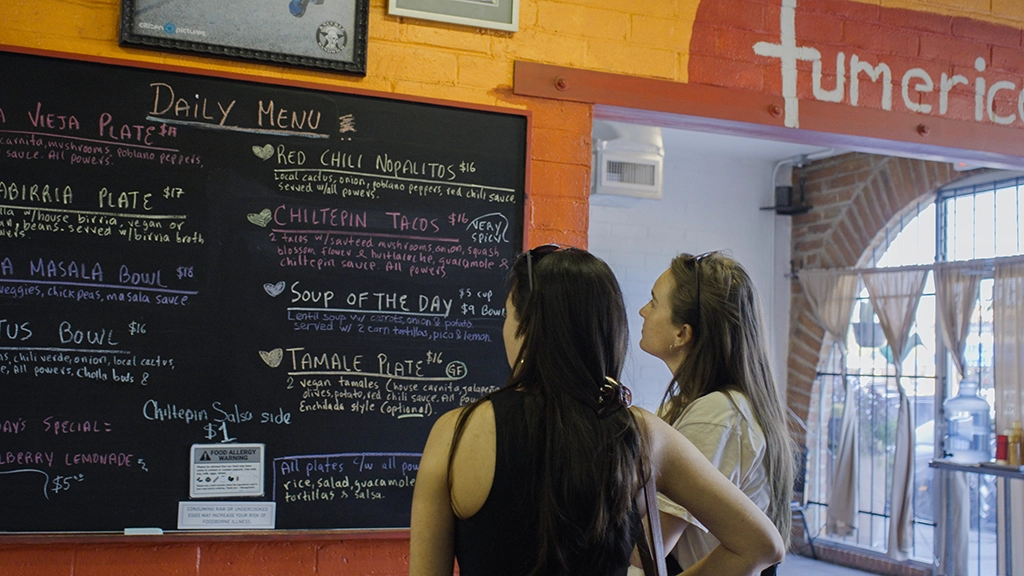 citizen pictures
tumerico
DAILY MENU
VIEJA PLATE
carnita, mushrooms, poblano peppers,
sauce. All powers.
BIRRIA PLATE $17
w/house birria, vegan or
beans. served w/birria broth
MASALA BOWL $18
veggies, chick peas, masala sauce
BOWL $16
chili verde, onion, local cactus,
All powers, Cholla buds &
SPECIAL:
LEMONADE
$5
RED CHILI NOPALITOS $16
Local cactus, onion, poblano peppers, red chili sauce.
Served w/all powers.
CHILTEPIN TACOS $16 VERY SPICY
2 tacos w/sauteed mushrooms, onion, squash
blossom flower & huitlacoche, guacamole &
chiltepin sauce. All powers
SOUP OF THE DAY $5 cup
$9 Bowl
Lentil soup w/ carrots, onion & potato
served w/ 2 corn tortillas, pico & lemon
TAMALE PLATE $16 GF
2 vegan tamales (house carnita, jalapeño
olives, potato, red chili sauce. All
Enchilada style (optional)
Chiltepin Salsa side
$1
FOOD ALLERGY
WARNING
CONSUMING RAW OR UNDERCOOKED
EGGS MAY INCREASE YOUR RISK OF
FOODBORNE ILLNESS.
All plates c/w all
rice, salad, guacamole
tortillas & salsa.